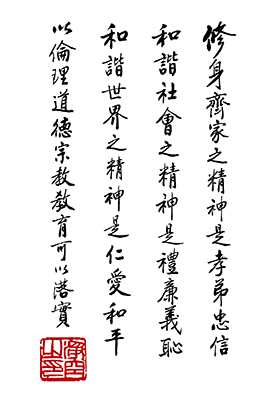 修身齊家之精神是孝弟忠信
和諧社會之精神是禮廉義恥
和諧世界之精神是仁愛和平
以倫理道德宗教教育可以落實
淨空之印